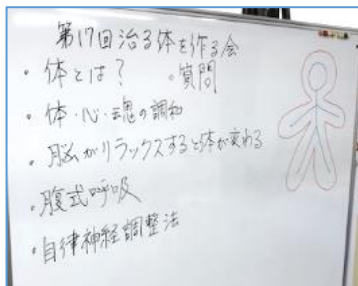 第17回治る体を作る会
・体とは? ○質問
・体・心・魂の調和
・脳がリラックスすると体が変わる
・腹式呼吸
・自律神経調整法